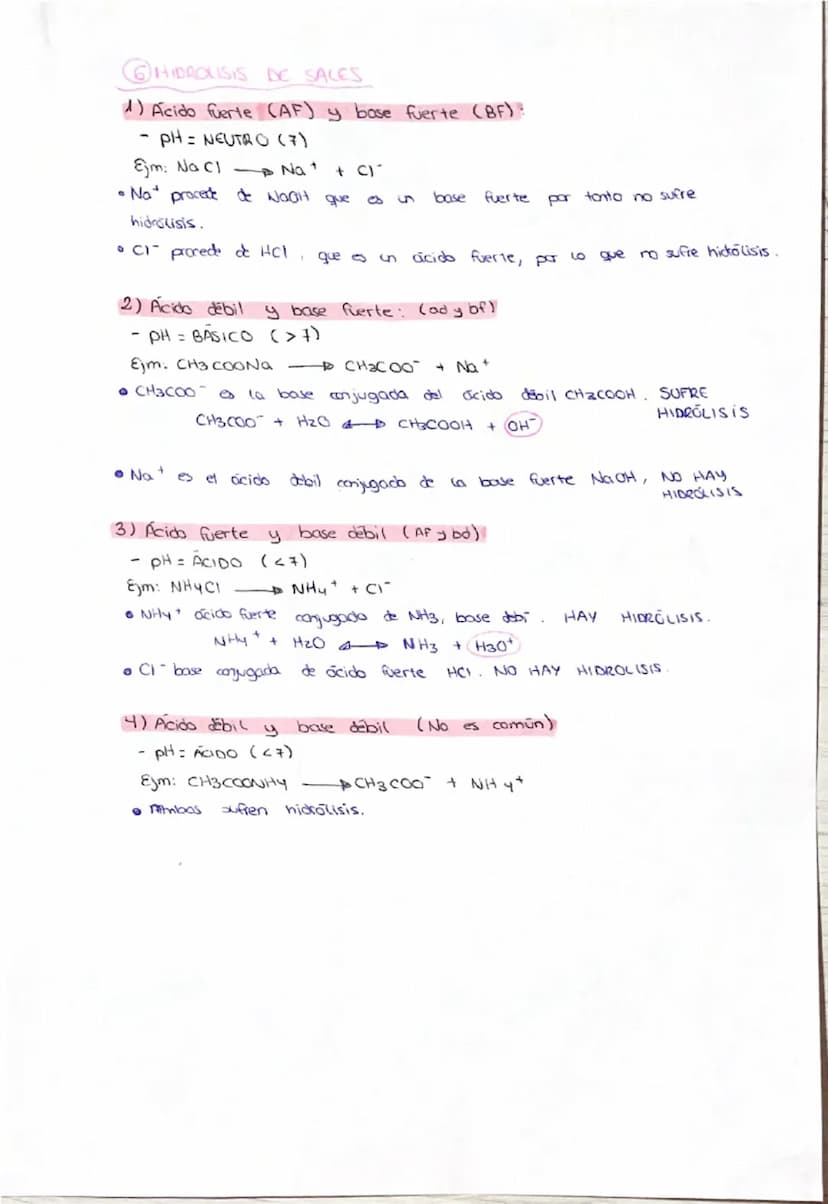 ⑥ HIDROLISIS DE SALES
1) Ácido fuerte (AF) y base fuerte (BF):
- pH = NEUTRO (7)
Ejm: NaCl → Na⁺ + Cl⁻
• Na⁺ procede de NaOH que es un base fuerte por tanto no sufre
hidrólisis.
• Cl⁻ procede de HCl, que es un ácido fuerte, por lo que no sufre hidrólisis.
2) Ácido débil y base fuerte: (ad y bf)
- pH = BÁSICO (>7)
Ejm: CH3COONa → CH3COO⁻ + Na⁺
• CH3COO⁻ es la base conjugada del ácido débil CH3COOH. SUFRE
HIDRÓLISIS
CH3COO⁻ + H2O ↔ CH3COOH + OH⁻
• Na⁺ es el ácido débil conjugado de la base fuerte NaOH, NO HAY
HIDRÓLISIS
3) Ácido fuerte y base débil (AF y bd)
- pH = ÁCIDO (<7)
Ejm: NH4Cl → NH4⁺ + Cl⁻
• NH4⁺ ácido fuerte conjugado de NH3, base debi. HAY HIDRÓLISIS.
NH4⁺ + H2O ↔ NH3 + H3O⁺
• Cl⁻ base conjugada de ácido fuerte HCl. NO HAY HIDROLISIS.
4) Ácido débil y base débil (No es común)
- pH = ÁCIDO (<7)
Ejm: CH3COONH4 → CH3COO⁻ + NH4⁺
• Ambos sufren hidrólisis.